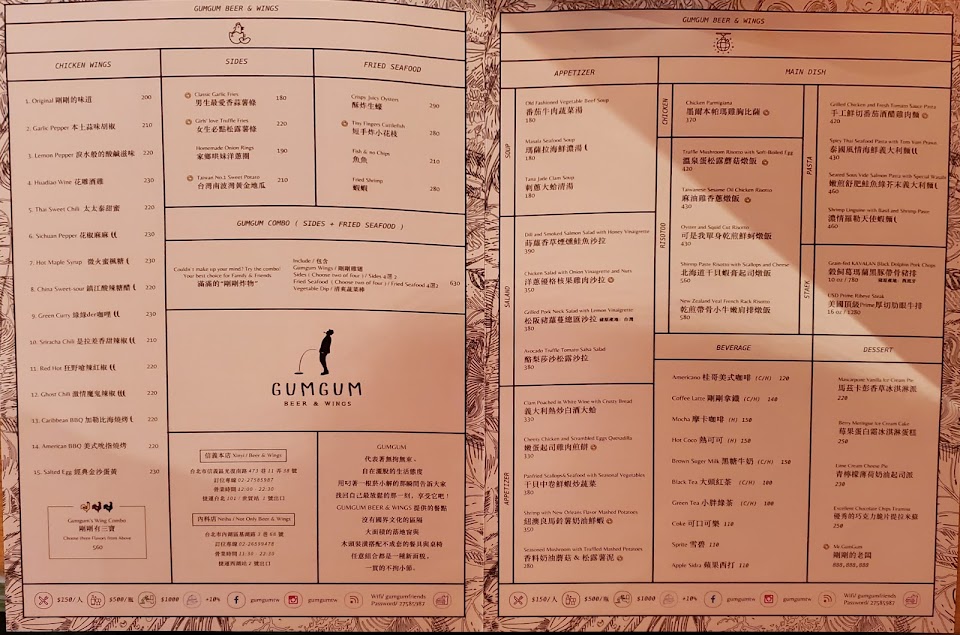 GUMGUM BEER & WINGS
CHICKEN WINGS
1. Original 剛剛的味道 200
2. Garlic Pepper 本土蒜味胡椒 210
3. Lemon Pepper 淚水般的酸鹹滋味 220
4. Huadiao Wine 花雕酒雞 230
5. Thai Sweet Chili 太太泰甜蜜 220
6. Sichuan Pepper 花椒麻麻 220
7. Hot Maple Syrup 微火蜜楓糖 220
8. China Sweet-sour 鎮江酸辣糖醋 220
9. Green Curry 綠綠der咖哩 220
10. Sriracha Chili 是拉差香甜辣椒 210
11. Red Hot 狂野嗆辣紅椒 220
12. Ghost Chili 激情魔鬼辣椒 220
13. Caribbean BBQ 加勒比海燒烤 220
14. American BBQ 美式晚燒烤 220
15. Salted Egg 經典金沙蛋黃 230
Gumgum's Wing Combo
剛剛有三寶
Choose three Flavors from Above
560
SIDES
Classic Garlic Fries
男生最愛香蒜薯條 180
Girls' love Truffle Fries
女生必點松露薯條 220
Homemade Onion Rings
家鄉哄妹洋蔥圈 190
Taiwan No.1 Sweet Potato
台灣南波灣黃金地瓜 210
FRIED SEAFOOD
Crispy Juicy Oysters
酥炸生蠔 290
Tiny Fingers Cuttlefish
短手炸小花枝 280
Fish & no Chips
魚魚 210
Fried Shrimp
蝦蝦 280
GUMGUM COMBO ( SIDES + FRIED SEAFOOD )
Couldn't make up your mind? Try the combo!
Your best choice for Family & Friends
滿滿的"剛剛炸物"
Include / 包含
Gumgum Wings / 剛剛雞翅
Sides ( Choose two of four ) / Sides 4選2
Fried Seafood ( Choose two of four ) / Fried Seafood 4選2
Vegetable Dip / 清爽蔬菜棒
630
GUMGUM
BEER & WINGS
信義本店 Xinyi / Beer & Wings
台北市信義區光復南路 473 巷 11 弄 38 號
訂位專線 02-27585987
營業時間 12:00 - 22:30
捷運台北 101 / 世貿站, 2 號出口
內科店 Neihu / Not Only Beer & Wings
台北市內湖區基湖路 1 巷 68 號
訂位專線 02-26598478
營業時間 11:30 - 22:30
捷運西湖站 2 號出口
GUMGUM
代表著無拘無束、
自在灑脫的生活態度
用叼著一根菸小解的那瞬間告訴大家
找回自己最放鬆的那一刻, 享受它吧！
GUMGUM BEER & WINGS 提供的餐點
沒有國界文化的區隔
大面積的落地窗與
木頭裝潢搭配不成套的餐具與桌椅
任意組合都是一種新面貌,
一貫的不拘小節。
$150/人 $500/瓶 $1000 +10% gumgumtw gumgumtw WiFi/ gumgumfriends
Password/ 27585982
GUMGUM BEER & WINGS
APPETIZER
SOUP
Old Fashioned Vegetable Beef Soup
番茄牛肉蔬菜湯
180
Masala Seafood Soup
瑪薩拉海鮮濃湯
180
Tuna Jude Clam Soup
刺蔥大蛤清湯
180
SALAND
Dill and Smoked Salmon Salad with Honey Vinaigrette
蒔蘿香草煙燻鮭魚沙拉
390
Chicken Salad with Onion Vinaigrette and Nuts
洋蔥優格核果雞肉沙拉
350
Grilled Pork Neck Salad with Lemon Vinaigrette
松阪豬蘿蔓總匯沙拉 豬原產地: 台灣
380
Avocado Truffle Tomato Salsa Salad
酪梨莎沙松露沙拉
380
APPETIZER
Clam Poached in White Wine with Crusty Bread
義大利熱炒白酒大蛤
330
Cheesy Chicken and Scrambled Eggs Quesadilla
嫩蛋起司雞肉煎餅
330
Panfried Scallops & Seafood with Seasonal Vegetables
干貝中卷鮮蝦炒蔬菜
380
Shrimp with New Orleans Flavor Mashed Potatoes
紐澳良馬鈴薯奶油鮮蝦
350
Seasoned Mushroom with Truffled Mashed Potatoes
香料奶油蘑菇 & 松露薯泥
280
MAIN DISH
CHICKEN
Chicken Parmigiana
墨爾本帕瑪雞胸比薩
370
RISOTOO
Truffle Mushroom Risotto with Soft-Boiled Egg
溫泉蛋松露蘑菇燉飯
430
Taiwanese Sesame Oil Chicken Risotto
麻油雞香蔥燉飯
430
Oyster and Squid Cut Risotto
可是我單身乾煎鮮蚵燉飯
430
Shrimp Paste Risotto with Scallops and Cheese
北海道干貝蝦膏起司燉飯
560
New Zealand Veal French Rack Risotto
乾煎帶骨小牛嫩肩排燉飯
580
PASTA
Grilled Chicken and Fresh Tomato Sauce Pasta
手工鮮切番茄酒醋雞肉麵
420
Spicy Thai Seafood Pasta with Tom Yum Prawn
泰國風情海鮮義大利麵
420
Seared Sous Vide Salmon Pasta with Special Wasabi
嫩煎舒肥鮭魚綠芥末義大利麵
460
Shrimp Linguine with Basil and Shrimp Paste
濃情羅勒天使蝦麵
450
STAEK
Grain-fed KAVALAN BLACK Dolphin Pork Chops
穀飼葛瑪蘭黑豚帶骨豬排
10 oz / 780
USD Prime Ribeye Steak
美國頂級Prime厚切肋眼牛排
16 oz / 1280
BEVERAGE
Americano 桂哥美式咖啡 (C/H) 120
Coffee Latte 剛剛拿鐵 (C/H) 140
Mocha 摩卡咖啡 (H) 150
Hot Coco 熱可可 (H) 150
Brown Suger Milk 黑糖牛奶 (C/H) 150
Black Tea 大頭紅茶 (C/H) 100
Green Tea 小胖綠茶 (C/H) 100
Coke 可口可樂 110
Sprite 雪碧 110
Apple Sidra 蘋果西打 110
DESSERT
Mascarpone Vanilla Ice Cream Pie
馬茲卡彭香草冰淇淋派
220
Berry Meringue Ice Cream Cake
莓果蛋白霜冰淇淋蛋糕
250
Lime Cream Cheese Pie
青檸檬薄荷奶油起司派
230
Excellent Chocolate Chips Tiramisu
優秀的巧克力脆片提拉米蘇
250
Mr. GumGum
剛剛的老闆
888,888,888
$150/人 $500/瓶 $1000 +10% gumgumtw gumgumtw WiFi/ gumgumfriends
Password/ 27585982